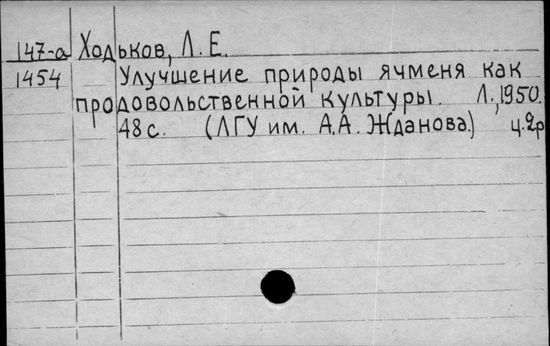 147-а Ходьков, Л. Е.
1454 Улучшение природы ячменя как
продовольственной культуры. Л., 1950.
48 с. (ЛГУ им. А.А. Жданова.) ц. 2р